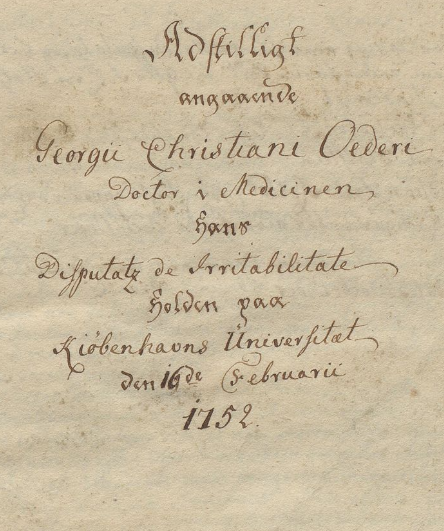 Adskilligt
angaaende
Georgii Christiani Oederi
Doctor i Medicinen
Hans
Disputatz de Irritabilitate
Holden paa
Kiøbenhavns Universitæt
den 16de Februarii
1752.